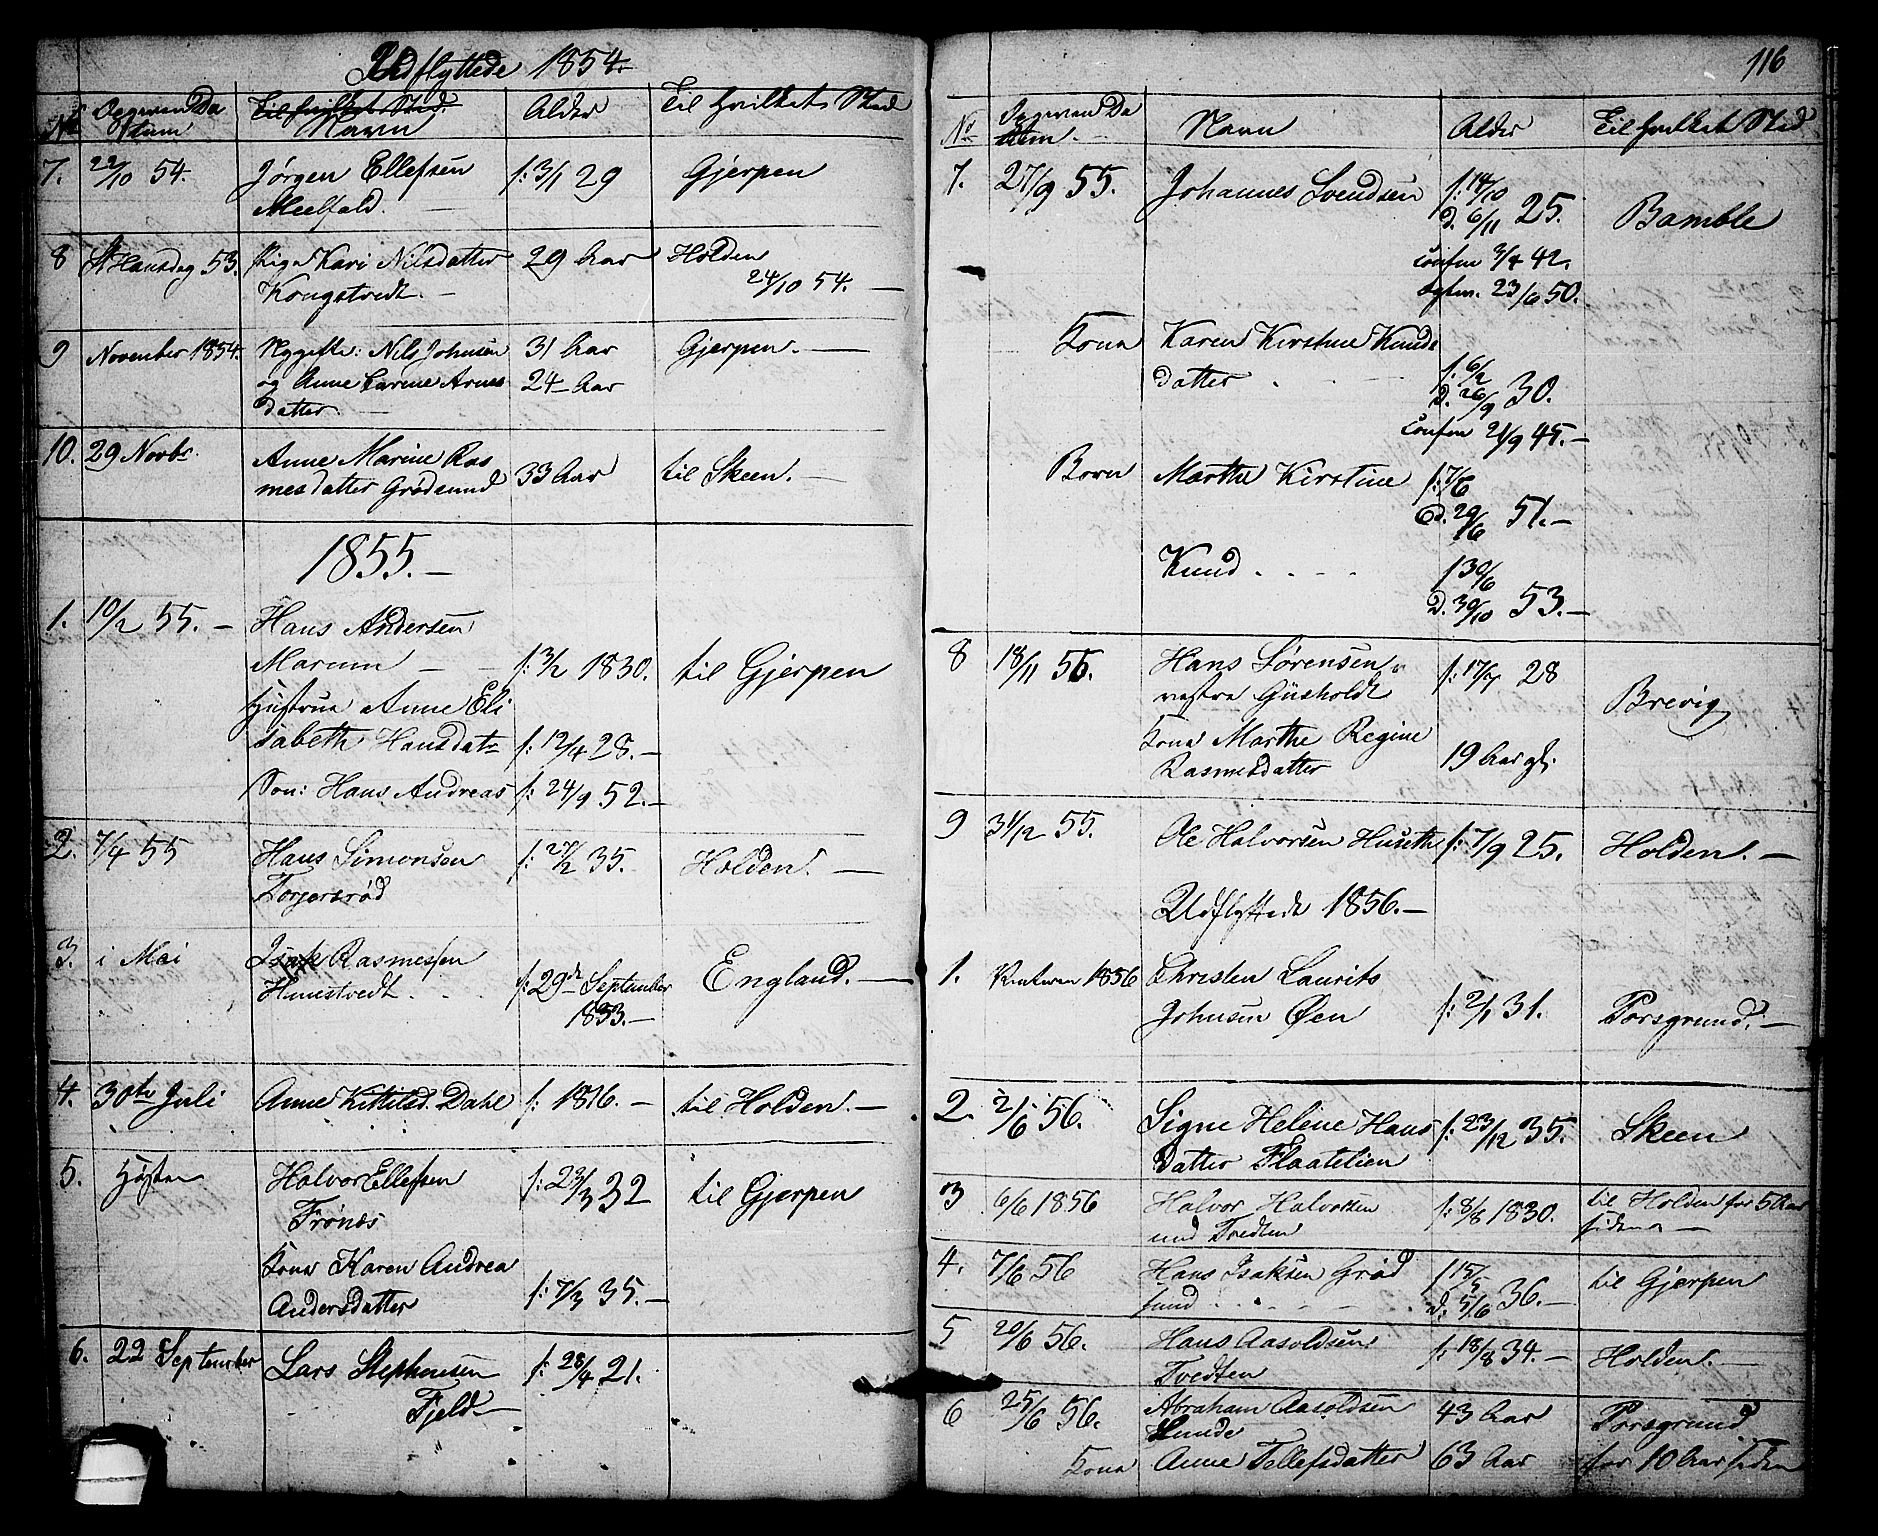 Udflyttede 1854.
No Opgiven Datum Til hvilket Sted. Navn Alder Til hvilket Sted
7. 22/10 54. Jørgen Ellefsen f: 3/1 29 Gjerpen
Meelfald.
8 St Hansdag 53. Pige Kari Nilsdatter 29 Aar Holden
Kongstvedt. 24/10 54.
9 November 1854. Nygifte: Nils Johnsen 31 Aar Gjerpen.
og Anne Karine Arnes 24 Aar
datter.
10. 29 Novbr. Anne Marine Ras 33 Aar til Skeen.
mesdatter Grødsund
1855.
1. 10/2 55. Hans Andersen
Marum f: 3/2 1830. til Gjerpen
Hustrue Anne Eli
sabeth Hansdatr f: 12/4 28.
Søn: Hans Andreas f: 24/9 52.
2. 7/4 55 Hans Simonsen f: 27/2 35. Holden.
Torjersrød
3. i Mai Isak Rasmussen England.
f: 29de September
1833.
4. 30te Juli Anne Kittilsd. Dahl f: 1816. til Holden.
5. Høsten Halvor Ellefsen f: 23/3 32 til Gjerpen
Frønæs
Kone Karen Andrea
Andersdatter f: 7/3 35.
6. 22 September Lars Stephensen f: 28/4 21.
Fjeld
116
No Opgiven Datum Navn Alder Til hvilket Sted
7. 27/9 55. Johannes Svendsen f: 14/10
D. 6/11 25. Bamble
Confm 3/4 42.
23/6 50.
Kone Karen Kirstine Knuds
datter f: 6/2
D. 26/9 30.
Confm 21/9 45.
Børn Marthe Kirstine f: 7/6
D. 29/6 51.
Knud f 30/6
D. 30/10 53.
8 18/11 55. Hans Sørensen f: 17/7 28
vestre Gusholdt Brevig
Kone Marthe Regine
Rasmusdatter 19 Aar gl.
9 31/12 55. Ole Halvorsen Huseth f: 7/9 25. Holden.
Udflyttede 1856.
1. Vinteren 1856 Christen Laurits
Johnsen Øen f: 2/1 31. Porsgrund.
2. 2/6 56. Signe Helene Hans f: 23/12 35. Skeen
datter Flaatelien
3 6/6 1856 Halvor Halvorsen f: 8/8 1830. til Holden for 5 Aar
Tvedten siden
4. 7/6 56 Hans Isaksen Grød f 15/5 til Gjerpen
sund D. 5/6 36.
5 20/6 56. Hans Aasoldsen f: 18/8 34. Holden.
Tvedten
6 25/6 56. Abraham Aasoldsen 43 Aar Porsgrund
Lunde
Kone Anne Tellefsdatter 63 Aar for 10 Aar siden